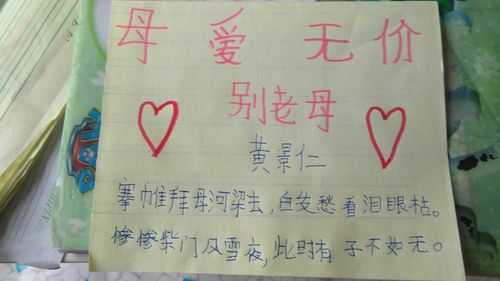 母爱无价
别老母
黄景仁
搴帷拜母河梁去,白发愁看泪眼枯。
惨惨柴门风雪夜,此时有子不如无。